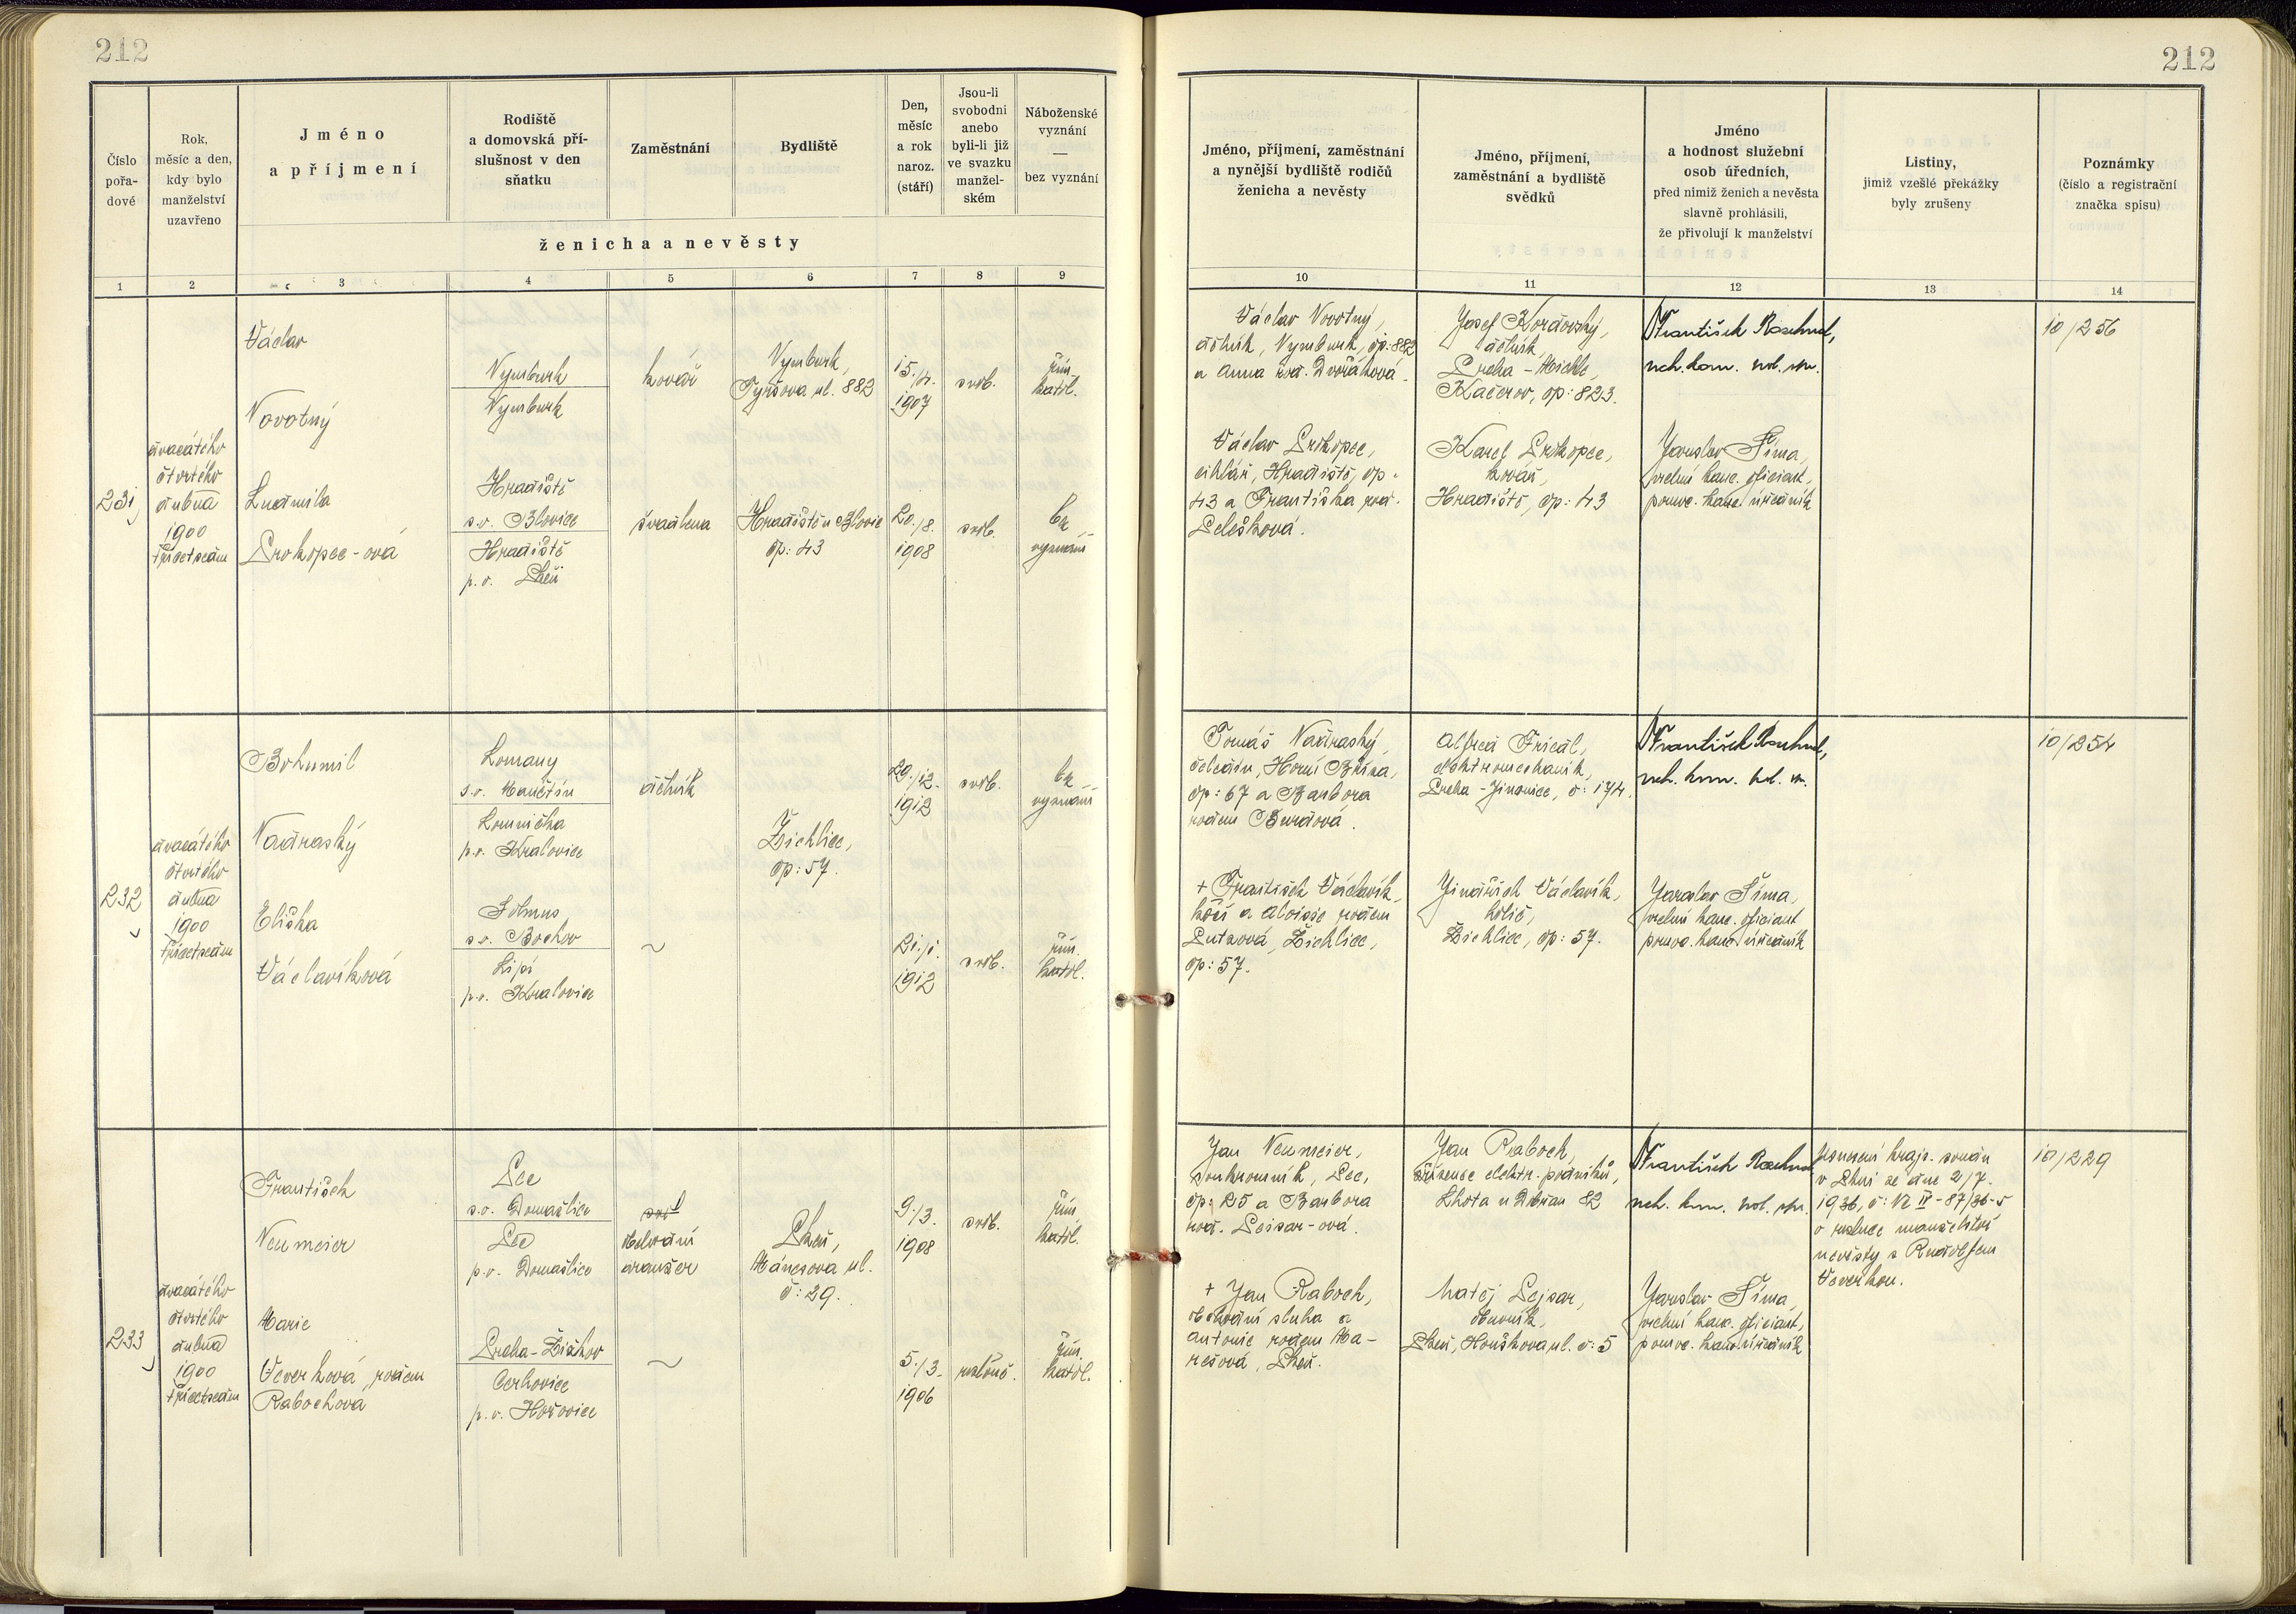 212
212
Číslo
pořa-
dové
Rok,
měsíc a den,
kdy bylo
manželství
uzavřeno
Jméno
a příjmení
Rodiště
a domovská pří-
slušnost v den
sňatku
Zaměstnání
Bydliště
Den,
měsíc
a rok
naroz.
(stáří)
Jsou-li
svobodni
anebo
byli-li již
ve svazku
manžel-
ském
Náboženské
vyznání
—
bez vyznání
ženicha a nevěsty
1 2 3 4 5 6 7 8 9
Jméno, příjmení, zaměstnání
a nynější bydliště rodičů
ženicha a nevěsty
Jméno, příjmení,
zaměstnání a bydliště
svědků
Jméno
a hodnost služební
osob úředních,
před nimiž ženich a nevěsta
slavně prohlásili,
že přivolují k manželství
Listiny,
jimiž vzešlé překážky
byly zrušeny
Poznámky
(číslo a registrační
značka spisu)
10 11 12 13 14
231
dvacátého
čtvrtého
dubna
1900
třicetsedm
Václav
Novotný
Ludmila
Prokopec-ová
Nymburk
Nymburk
Hradiště
s.o. Blovice
Hradiště
p.o. Plzeň
kovář
švadlena
Nymburk,
Tyršova ul. 882
Hradiště u Blovic
čp: 43
15./4.
1907
20./8.
1908
svob.
svob.
řím.
katol.
bez
vyznání
Václav Novotný,
dělník, Nymburk, čp: 882
a Anna roz. Dvořáková.
Václav Prokopec,
cihlář, Hradiště, čp.
43 a Františka roz.
Pelešková.
Josef Kordovský,
dělník,
Praha - Michle,
Kačerov, čp: 823.
Karel Prokopec,
kovář,
Hradiště, čp: 43
František
Jaroslav Šíma,
vrchní kanc. oficiant,
pomoc. kanc. úředník
10/256
232
dvacátého
čtvrtého
dubna
1900
třicetsedm
Bohumil
Nadraský
Eliška
Václavíková
Lomany
s.o. Manětín
Lomnička
p.o. Kralovice
s.o. Bochov
Lipí
p.o. Kralovice
dělník
~
Žichlice,
čp: 57.
29./12.
1912
21./1.
1912
svob.
svob.
bez
vyznání
řím.
katol.
Tomáš Nadraský,
čeledín, Horní Bříza,
čp: 67 a Barbora
rozem Burdová.
+ František Václavík,
kočí a Aloisie rozem
Žichlice,
čp: 57.
Alfred
elektromechanik,
Praha - Jinonice, č: 174.
Jindřich Václavík,
holič,
Žichlice, čp: 57.
František
Jaroslav Šíma,
vrchní kanc. oficiant
pomoc. kanc. úředník
10/254
233
dvacátého
čtvrtého
dubna
1900
třicetsedm
František
Neumeier
Marie
Veverková, rozem
Rabochová
Pec
s.o. Domažlice
Pec
p.o. Domažlice
Praha-Žižkov
Cerhovice
p.o. Hořovice
obchodní
aranžér
~
Plzeň,
Mánesova ul.
č: 29.
9./3.
1908
5./3.
1906
svob.
rozlouč.
řím.
katol.
řím.
katol.
Jan Neumeier,
soukromník, Pec,
čp: 25 a Barbora
roz. Peisar-ová.
+ Jan Raboch,
obchodní sluha a
Antonie rozem Ma-
rešová, Plzeň.
Jan Raboch,
zřízenec elektr. podniků,
Lhota u Dobřan 82
Matěj Pejsar,
Plzeň, Houškova ul. č: 5
František
Jaroslav Šíma,
vrchní kanc. oficiant,
pomoc. kanc. úředník
usnesení kraj. soudu
v Plzni ze dne 2/7.
1936, č:
o rozluce manželství
nevěsty s Rudolfem
Veverkou.
10/229